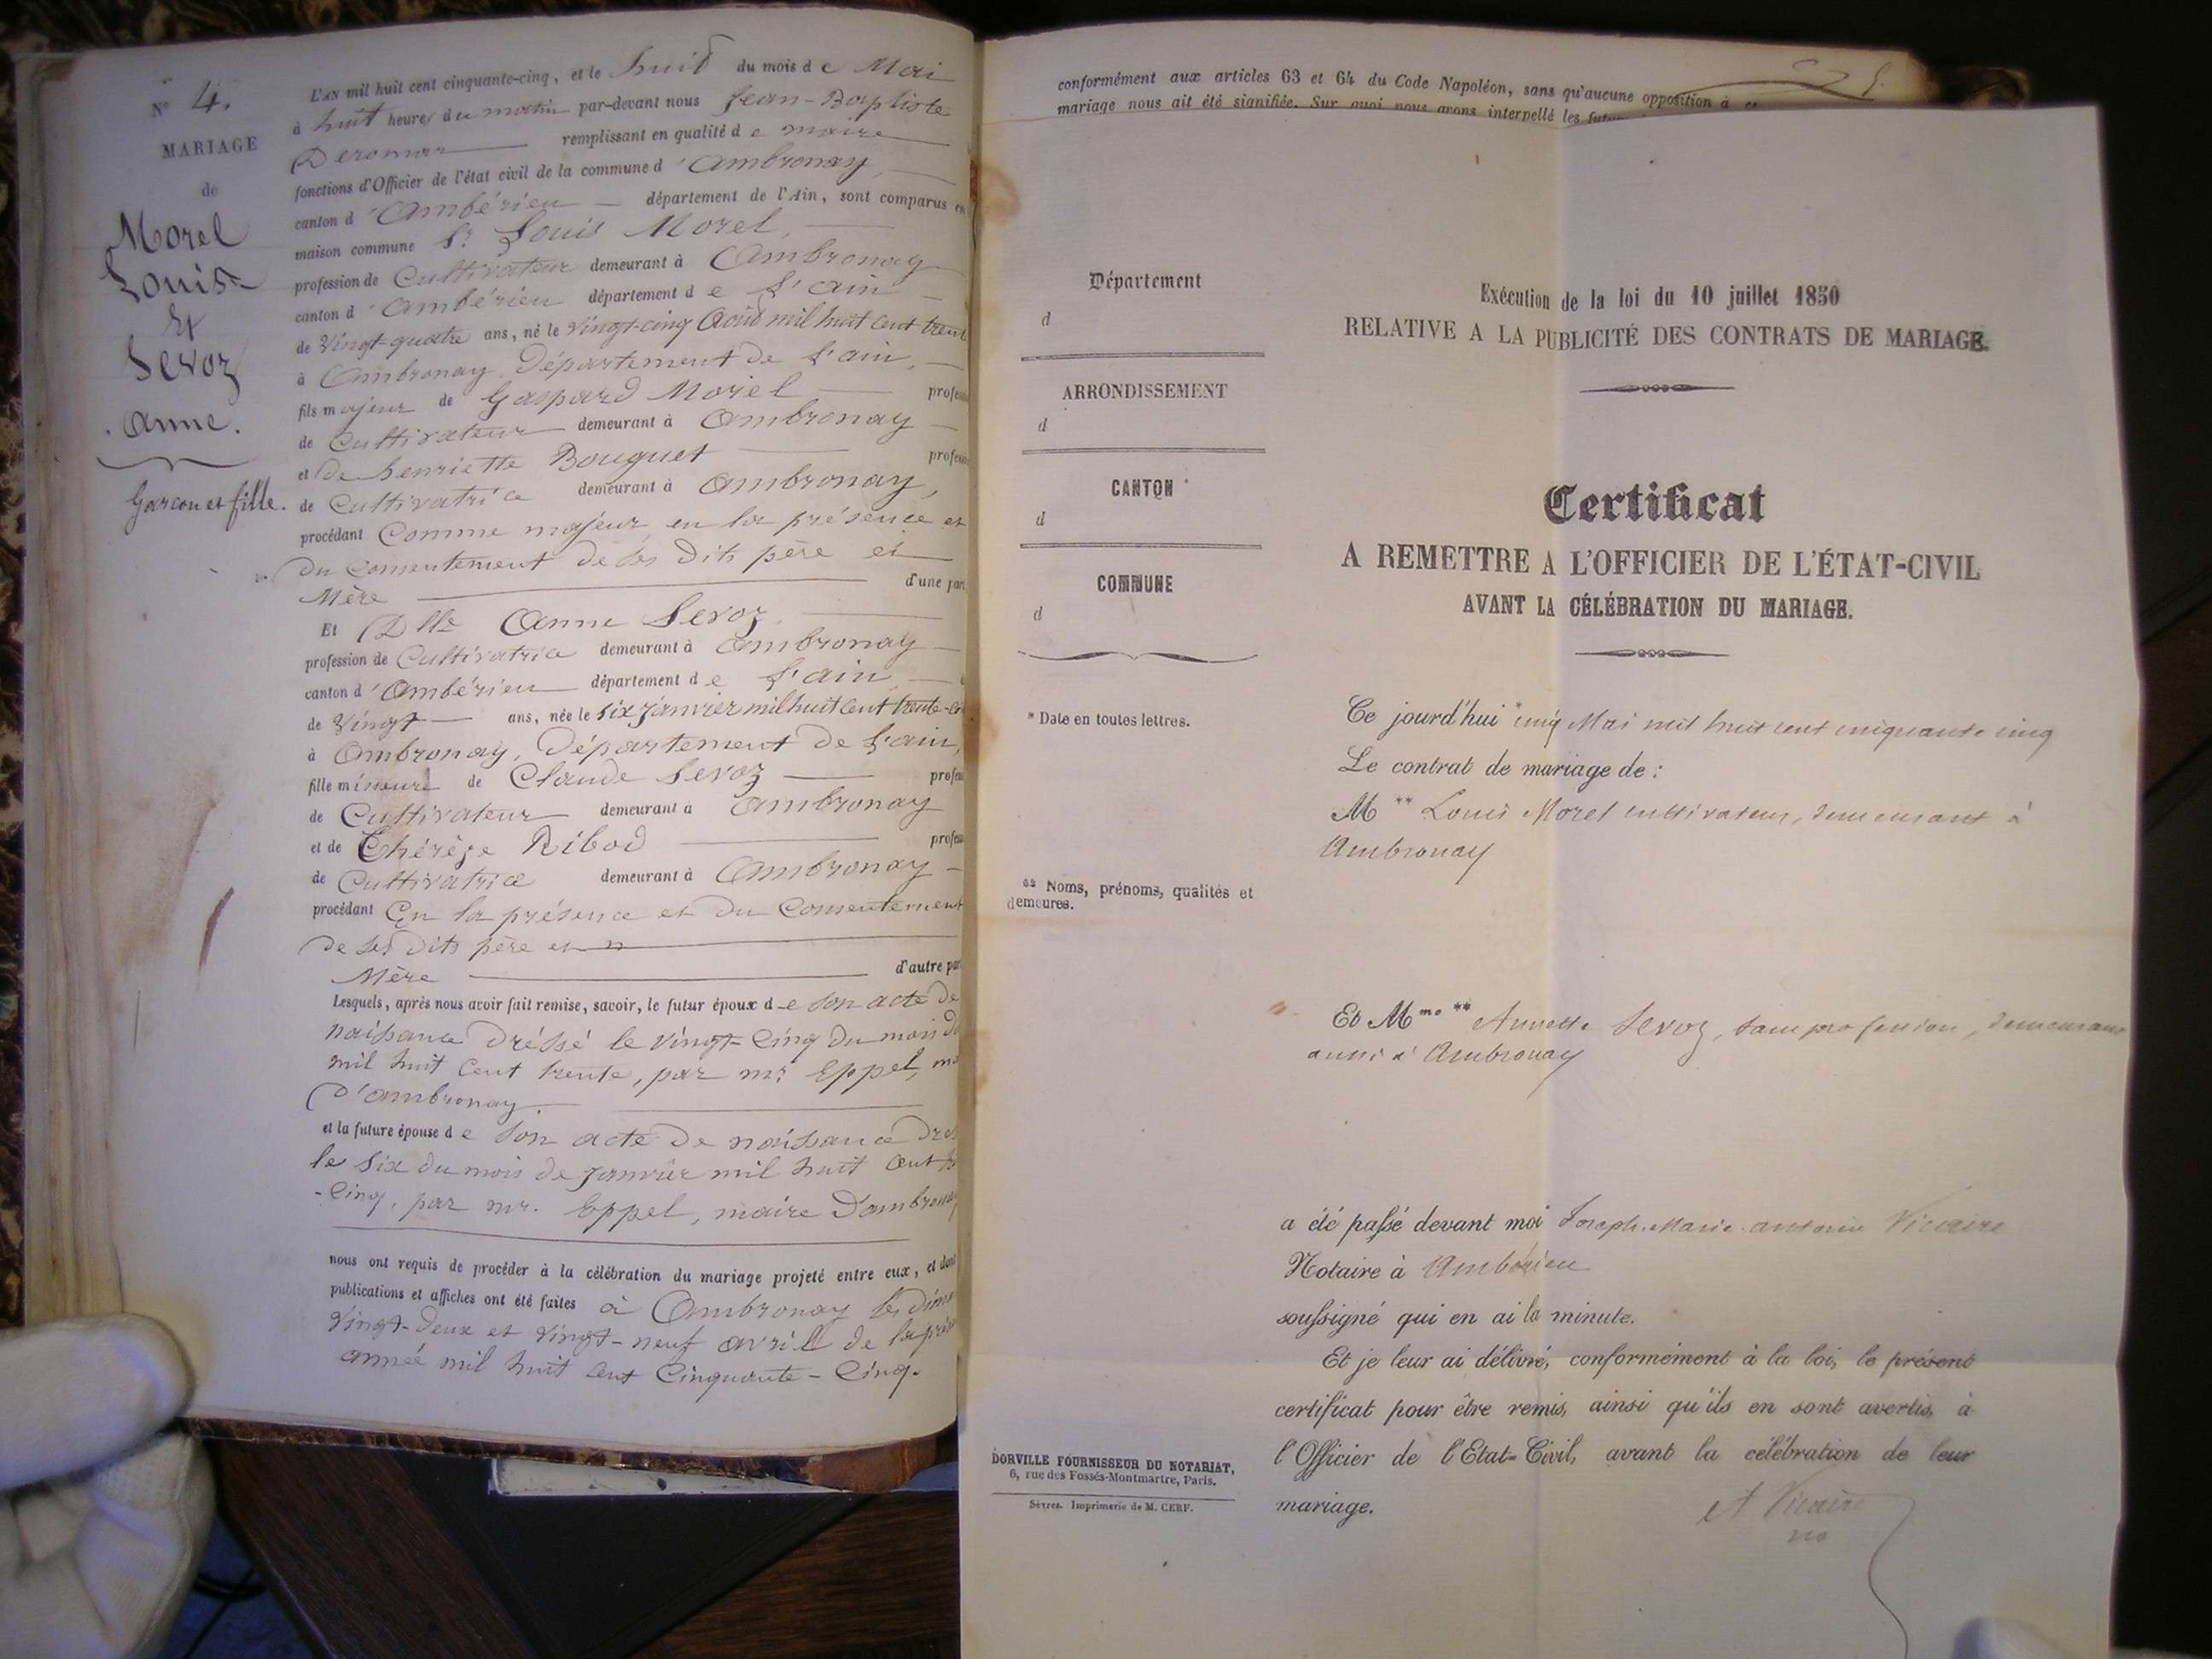 N° 4.
MARIAGE
de
Morel
Louis
Et
Sevoz
Anne.
Garçon et fille.
L'AN mil huit cent cinquante-cinq, et le huit du mois de Mai
à huit heures du matin par-devant nous Jean-Baptiste
Deromas remplissant en qualité de maire
fonctions d'Officier de l'état civil de la commune d'Ambronay
canton d'Ambérieu département de l'Ain, sont comparus en
maison commune Sr Louis Morel,
profession de Cultivateur demeurant à Ambronay
canton d'Ambérieu département de l'ain
de Vingt-quatre ans, né le vingt-cinq Août mil huit cent trente
à Ambronay, Département de l'ain,
fils majeur de Gaspard Morel
de Cultivateur demeurant à Ambronay
et de henriette Bouguet
de Cultivatrice demeurant à Ambronay,
procédant Comme majeur en la présence et
du Consentement de ses dits père et
Mère d'une part
Et Dlle Anne Sevoz.
profession de Cultivatrice demeurant à Ambronay
canton d'Ambérieu département de l'ain
de Vingt ans, née le six Janvier mil huit cent trente-
à Ambronay, Département de l'ain,
fille mineure de Claude Sevoz
de Cultivateur demeurant à Ambronay
et de Thérèse Ribod
de Cultivatrice demeurant à Ambronay
procédant En la présence et du Consentement
de ses dits père et
Mère d'autre par
Lesquels, après nous avoir fait remise, savoir, le futur époux de son acte de
naissance dréssé le vingt-cinq du mois d
mil huit cent trente, par mr. Eppel,
d'ambronay.
et la future épouse de son acte de naissance
le six du mois de janvier mil huit cent
-cinq, par mr. Eppel, maire d'ambronay
nous ont requis de procéder à la célébration du mariage projeté entre eux, et dont
publications et affiches ont été faites à Ambronay les
vingt-deux et vingt-neuf avrill de la
année mil huit cent cinquante-cinq.
conformément aux articles 63 et 64 du Code Napoléon, sans qu'aucune opposition à
mariage nous ait été signifiée. Sur quoi nous avons interpellé les
Département
d
ARRONDISSEMENT
d
CANTON
d
COMMUNE
d
* Date en toutes lettres.
** Noms, prénoms, qualités et
demeures.
DORVILLE FOURNISSEUR DU NOTARIAT,
6, rue des Fossés-Montmartre, Paris.
Sèvres. Imprimerie de M. CERF.
Exécution de la loi du 10 juillet 1850
RELATIVE A LA PUBLICITÉ DES CONTRATS DE MARIAGE.
Certificat
A REMETTRE A L'OFFICIER DE L'ÉTAT-CIVIL
AVANT LA CÉLÉBRATION DU MARIAGE.
Ce jourd'hui * cinq Mai mil huit cent cinquante cinq
Le contrat de mariage de :
M ** Louis Morel cultivateur, demeurant à
Ambronay
Et Mme ** Annette Sevoz, sans profession, demeurant
aussi à Ambronay
a été passé devant moi Joseph-Marie-antoine Vicaire
Notaire à Ambérieu
soussigné qui en ai la minute.
Et je leur ai délivré, conformément à la loi, le présent
certificat pour être remis, ainsi qu'ils en sont avertis, à
l'Officier de l'Etat-Civil, avant la célébration de leur
mariage.
A Vicaire